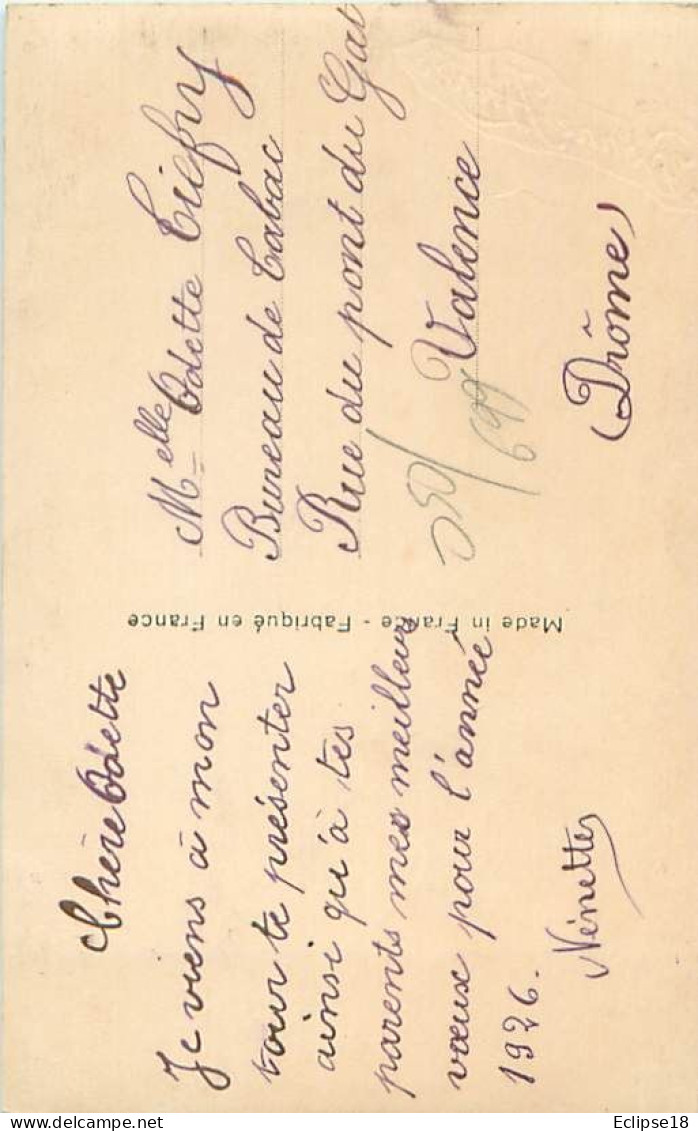 Chère Odette
Je viens à mon
tour te présenter
ainsi qu'à tes
parents mes meilleurs
vœux pour l'année
1926.
Ninette
Made in France - Fabriqué en France
Melle Odette
Bureau de Tabac
Rue du pont du Gat
Valence
(Drôme)
Eclipse18